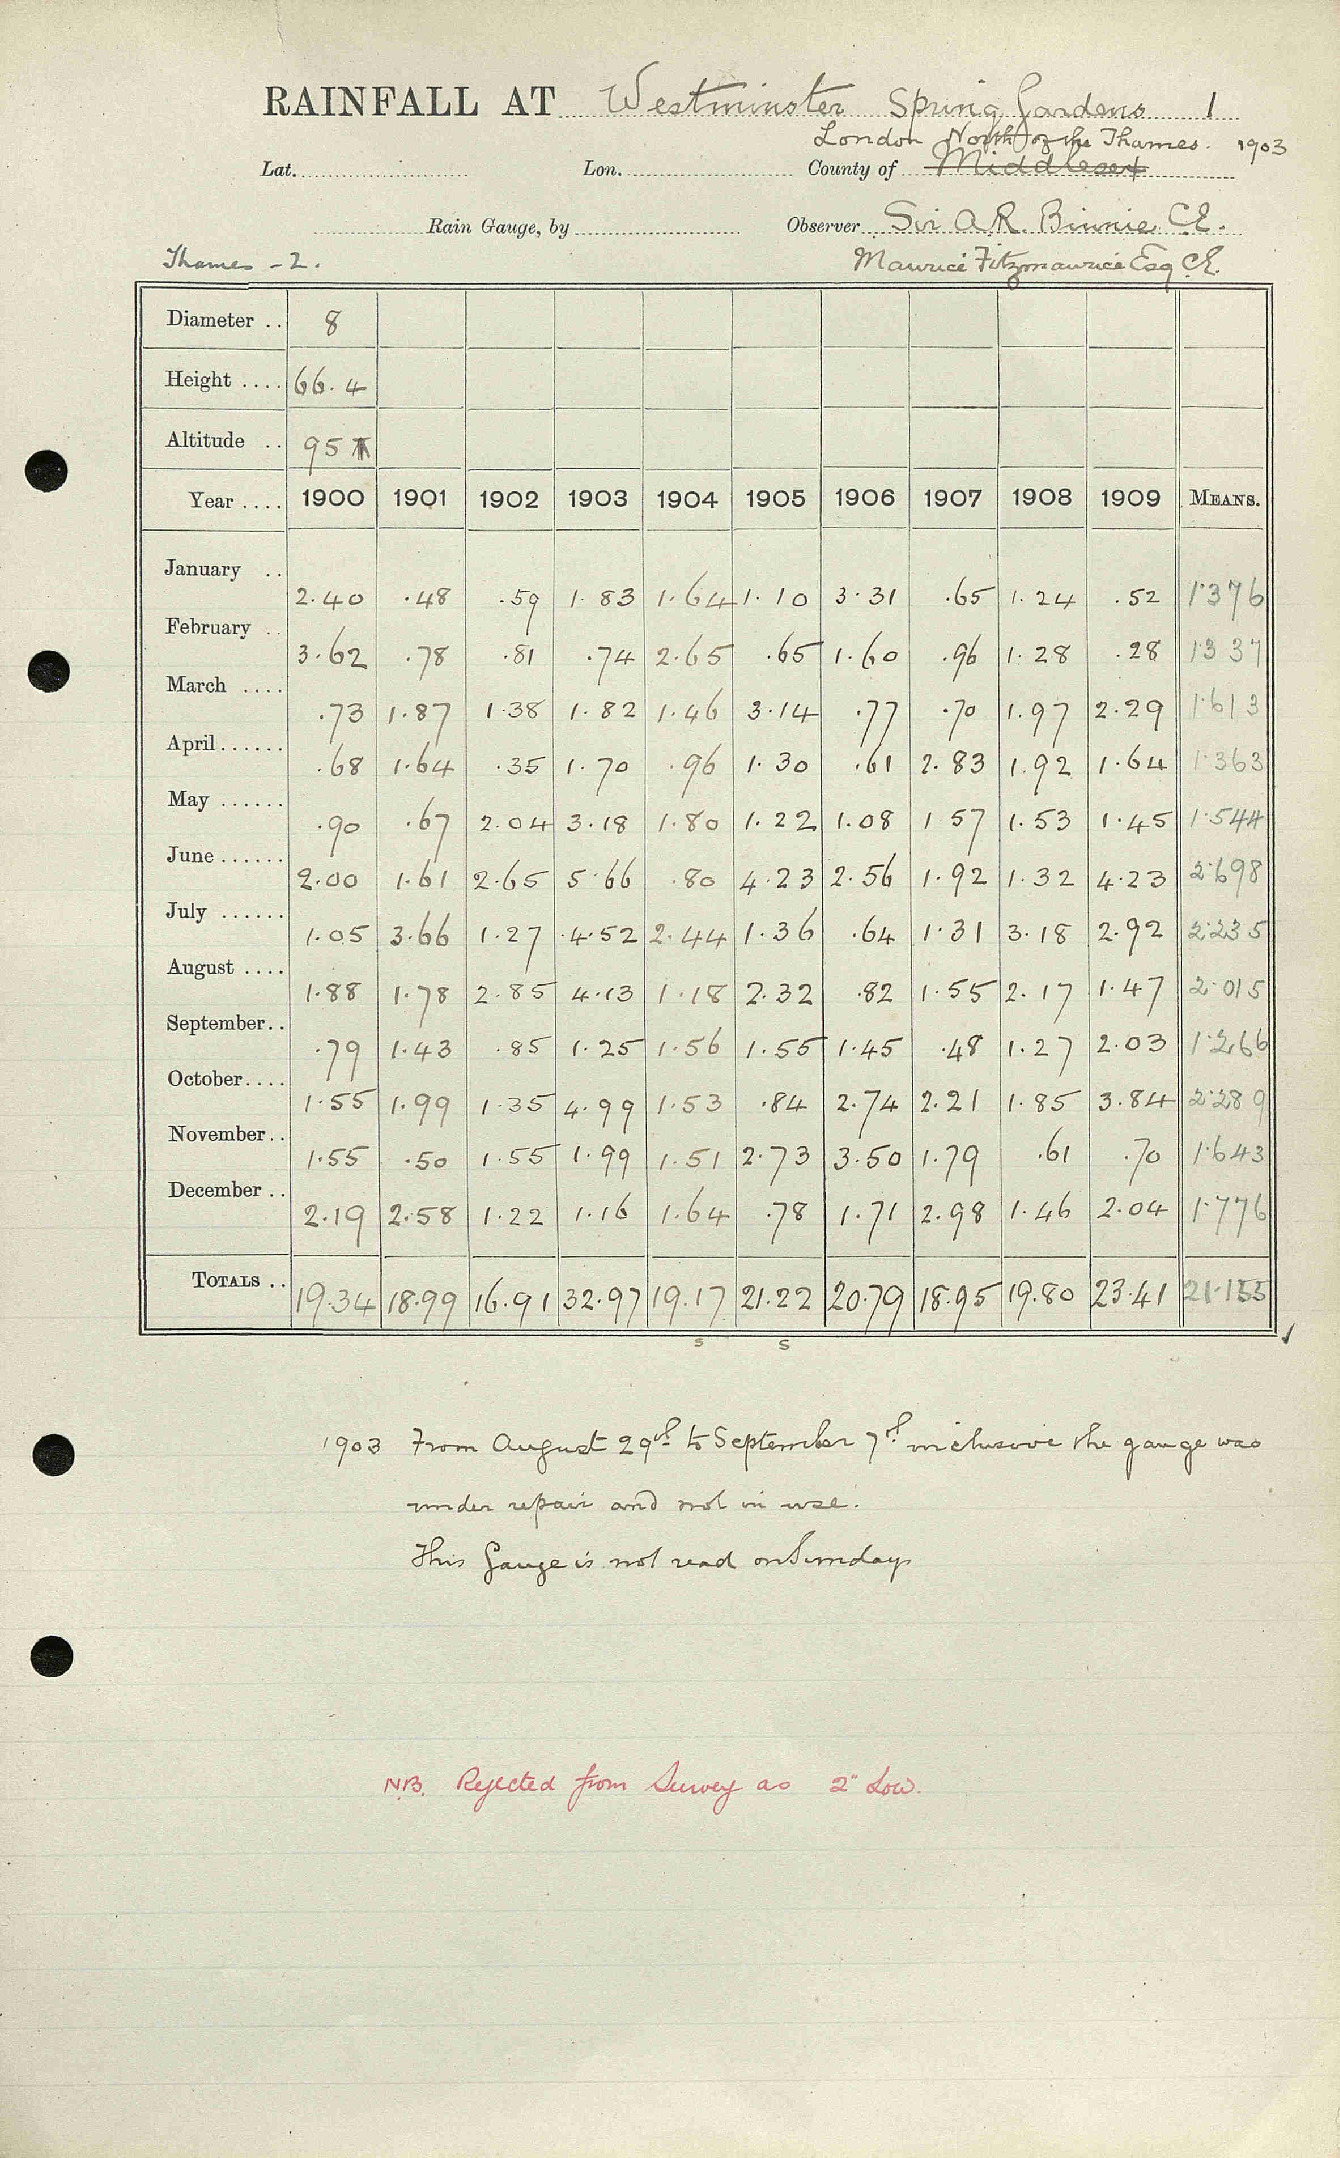 RAINFALL AT Westminster Spring Gardens 1
London North of the Thames. 1903
Lat. Lon. County of Middlesex
Rain Gauge, by Observer Sir A.R. Binnie C.E.
Thames - 2. Maurice Fitzmaurice Esq C.E.
Diameter .. 8
Height .... 66.4
Altitude .. 95
Year .... 1900 1901 1902 1903 1904 1905 1906 1907 1908 1909 MEANS.
January .. 2.40 .48 .59 1.83 1.64 1.10 3.31 .65 1.24 .52 1.376
February .. 3.62 .78 .81 .74 2.65 .65 1.60 .96 1.28 .28 1.337
March .... .73 1.87 1.38 1.82 1.46 3.14 .77 .70 1.97 2.29 1.613
April ...... .68 1.64 .35 1.70 .96 1.30 .61 2.83 1.92 1.64 1.363
May ...... .90 .67 2.04 3.18 1.80 1.22 1.08 1.57 1.53 1.45 1.544
June ...... 2.00 1.61 2.65 5.66 .80 4.23 2.56 1.92 1.32 4.23 2.698
July ...... 1.05 3.66 1.27 4.52 2.44 1.36 .64 1.31 3.18 2.92 2.235
August .... 1.88 1.78 2.85 4.13 1.18 2.32 .82 1.55 2.17 1.47 2.015
September.. .79 1.43 .85 1.25 1.56 1.55 1.45 .48 1.27 2.03 1.266
October.... 1.55 1.99 1.35 4.99 1.53 .84 2.74 2.21 1.85 3.84 2.289
November.. 1.55 .50 1.55 1.99 1.51 2.73 3.50 1.79 .61 .70 1.643
December .. 2.19 2.58 1.22 1.16 1.64 .78 1.71 2.98 1.46 2.04 1.776
TOTALS .. 19.34 18.99 16.91 32.97 19.17 21.22 20.79 18.95 19.80 23.41 21.155
s s
1903 From August 29th to September 7th inclusive the gauge was
under repair and not in use.
This Gauge is not read on Sundays
N.B. Rejected from Survey as 2" Low.